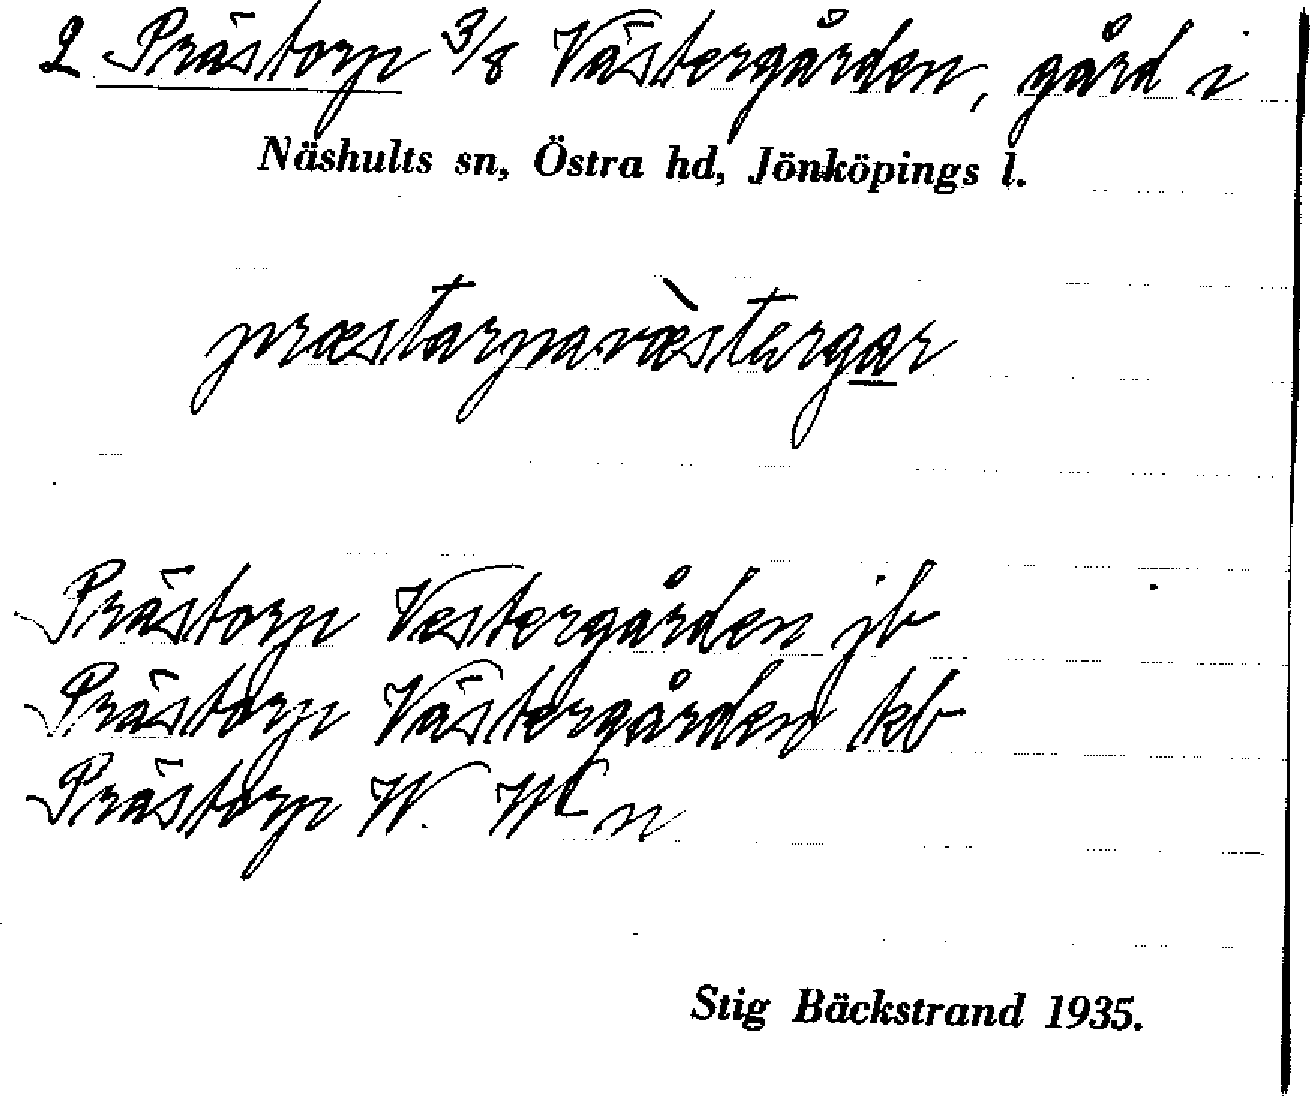 2 Prästorp 3/8 Västergården, gård i
Näshults sn, Östra hd, Jönköpings l.
præstarpavæ̀stərga̲r
Prästorp Vestergården jb
Prästorp Västergården kb
Prästorp W.
Stig Bäckstrand 1935.